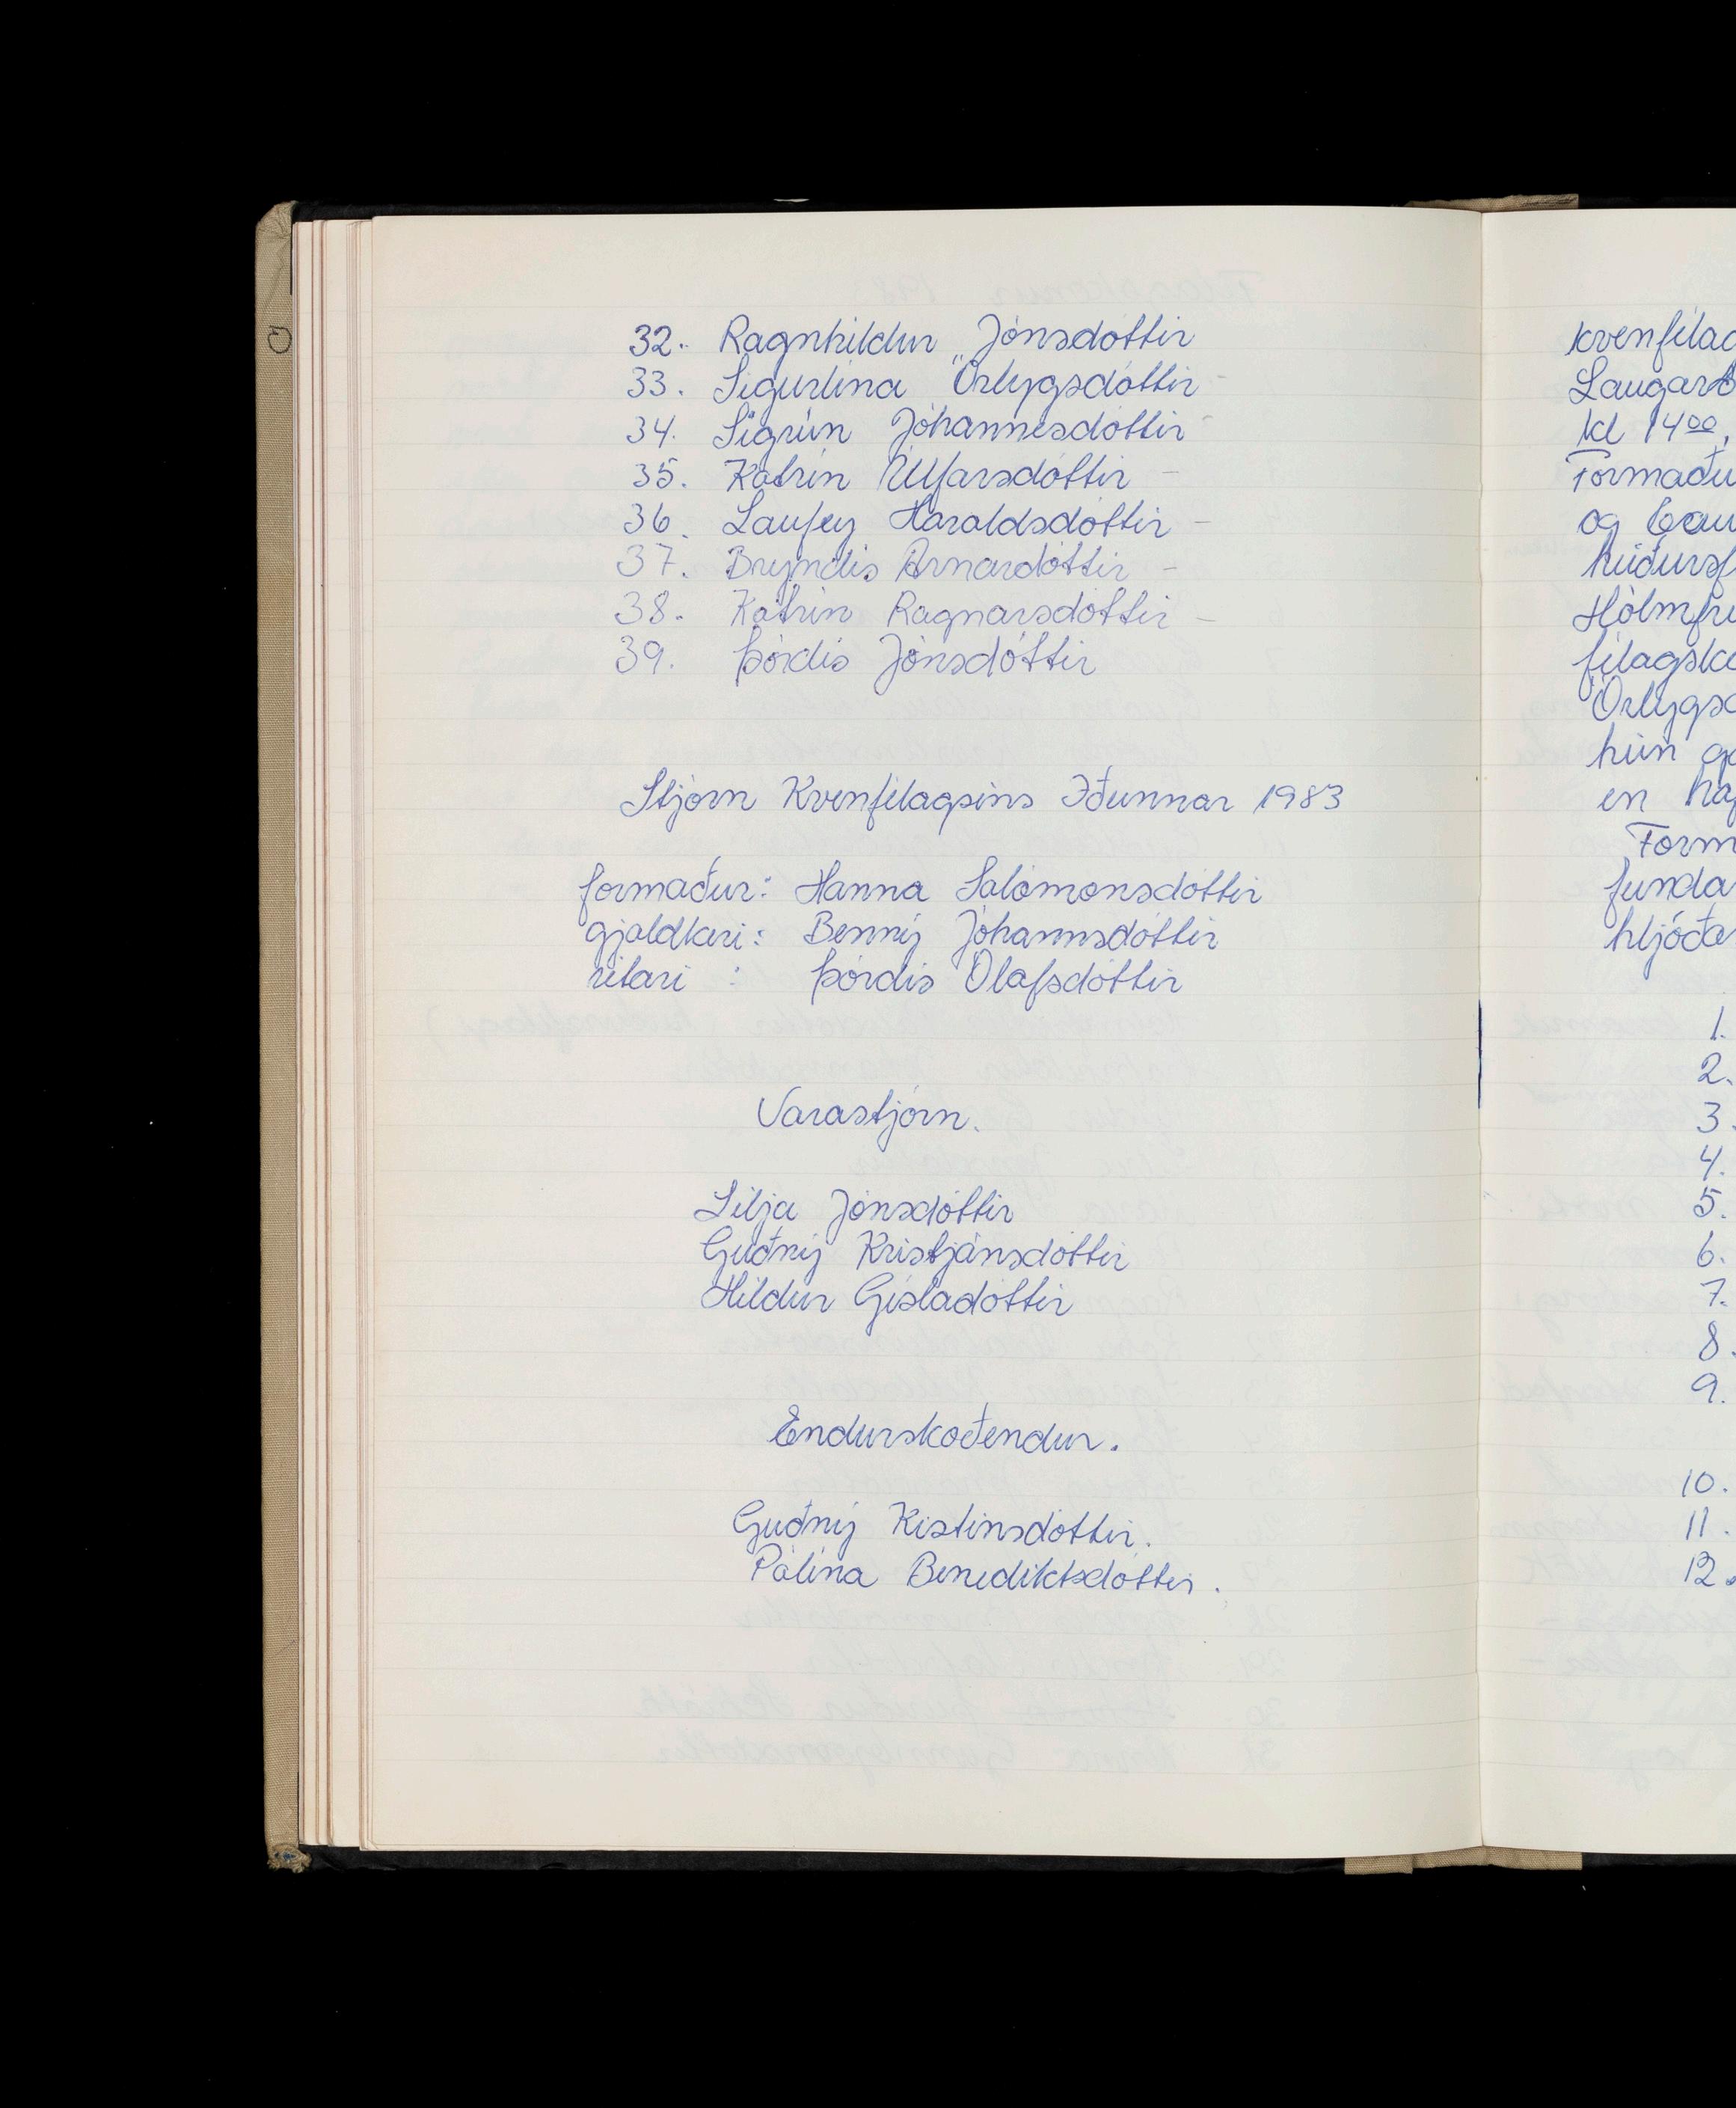 32. Ragnhildur Jónsdóttir
33. Sigurlína Örlygsdóttir -
34. Sigrún Jóhannesdóttir -
35. Katrín Úlfarsdóttir -
36. Laufey Haraldsdóttir -
37. Bryndís Arnardóttir -
38. Katrín Ragnarsdóttir -
39. Þórdís Jónsdóttir
Stjórn Kvenfélagsins Iðunnar 1983
formaður: Hanna Salómonsdóttir
gjaldkeri: Benný Jóhannsdóttir
ritari : Þórdís Ólafsdóttir
Varastjórn.
Lilja Jónsdóttir
Guðný Kristjánsdóttir
Hildur Gísladóttir
Endurskoðendur.
Guðný Kistinsdóttir.
Pálína Benediktsdóttir.
kvenfélag
Laugarb
kl 14 00,
Formaðu
og
Hólmfrí
félagsko
Örlygsd
hún
en
Form
funda
hljóða
1.
2.
3.
4.
5.
6.
7.
8.
9.
10.
11.
12.